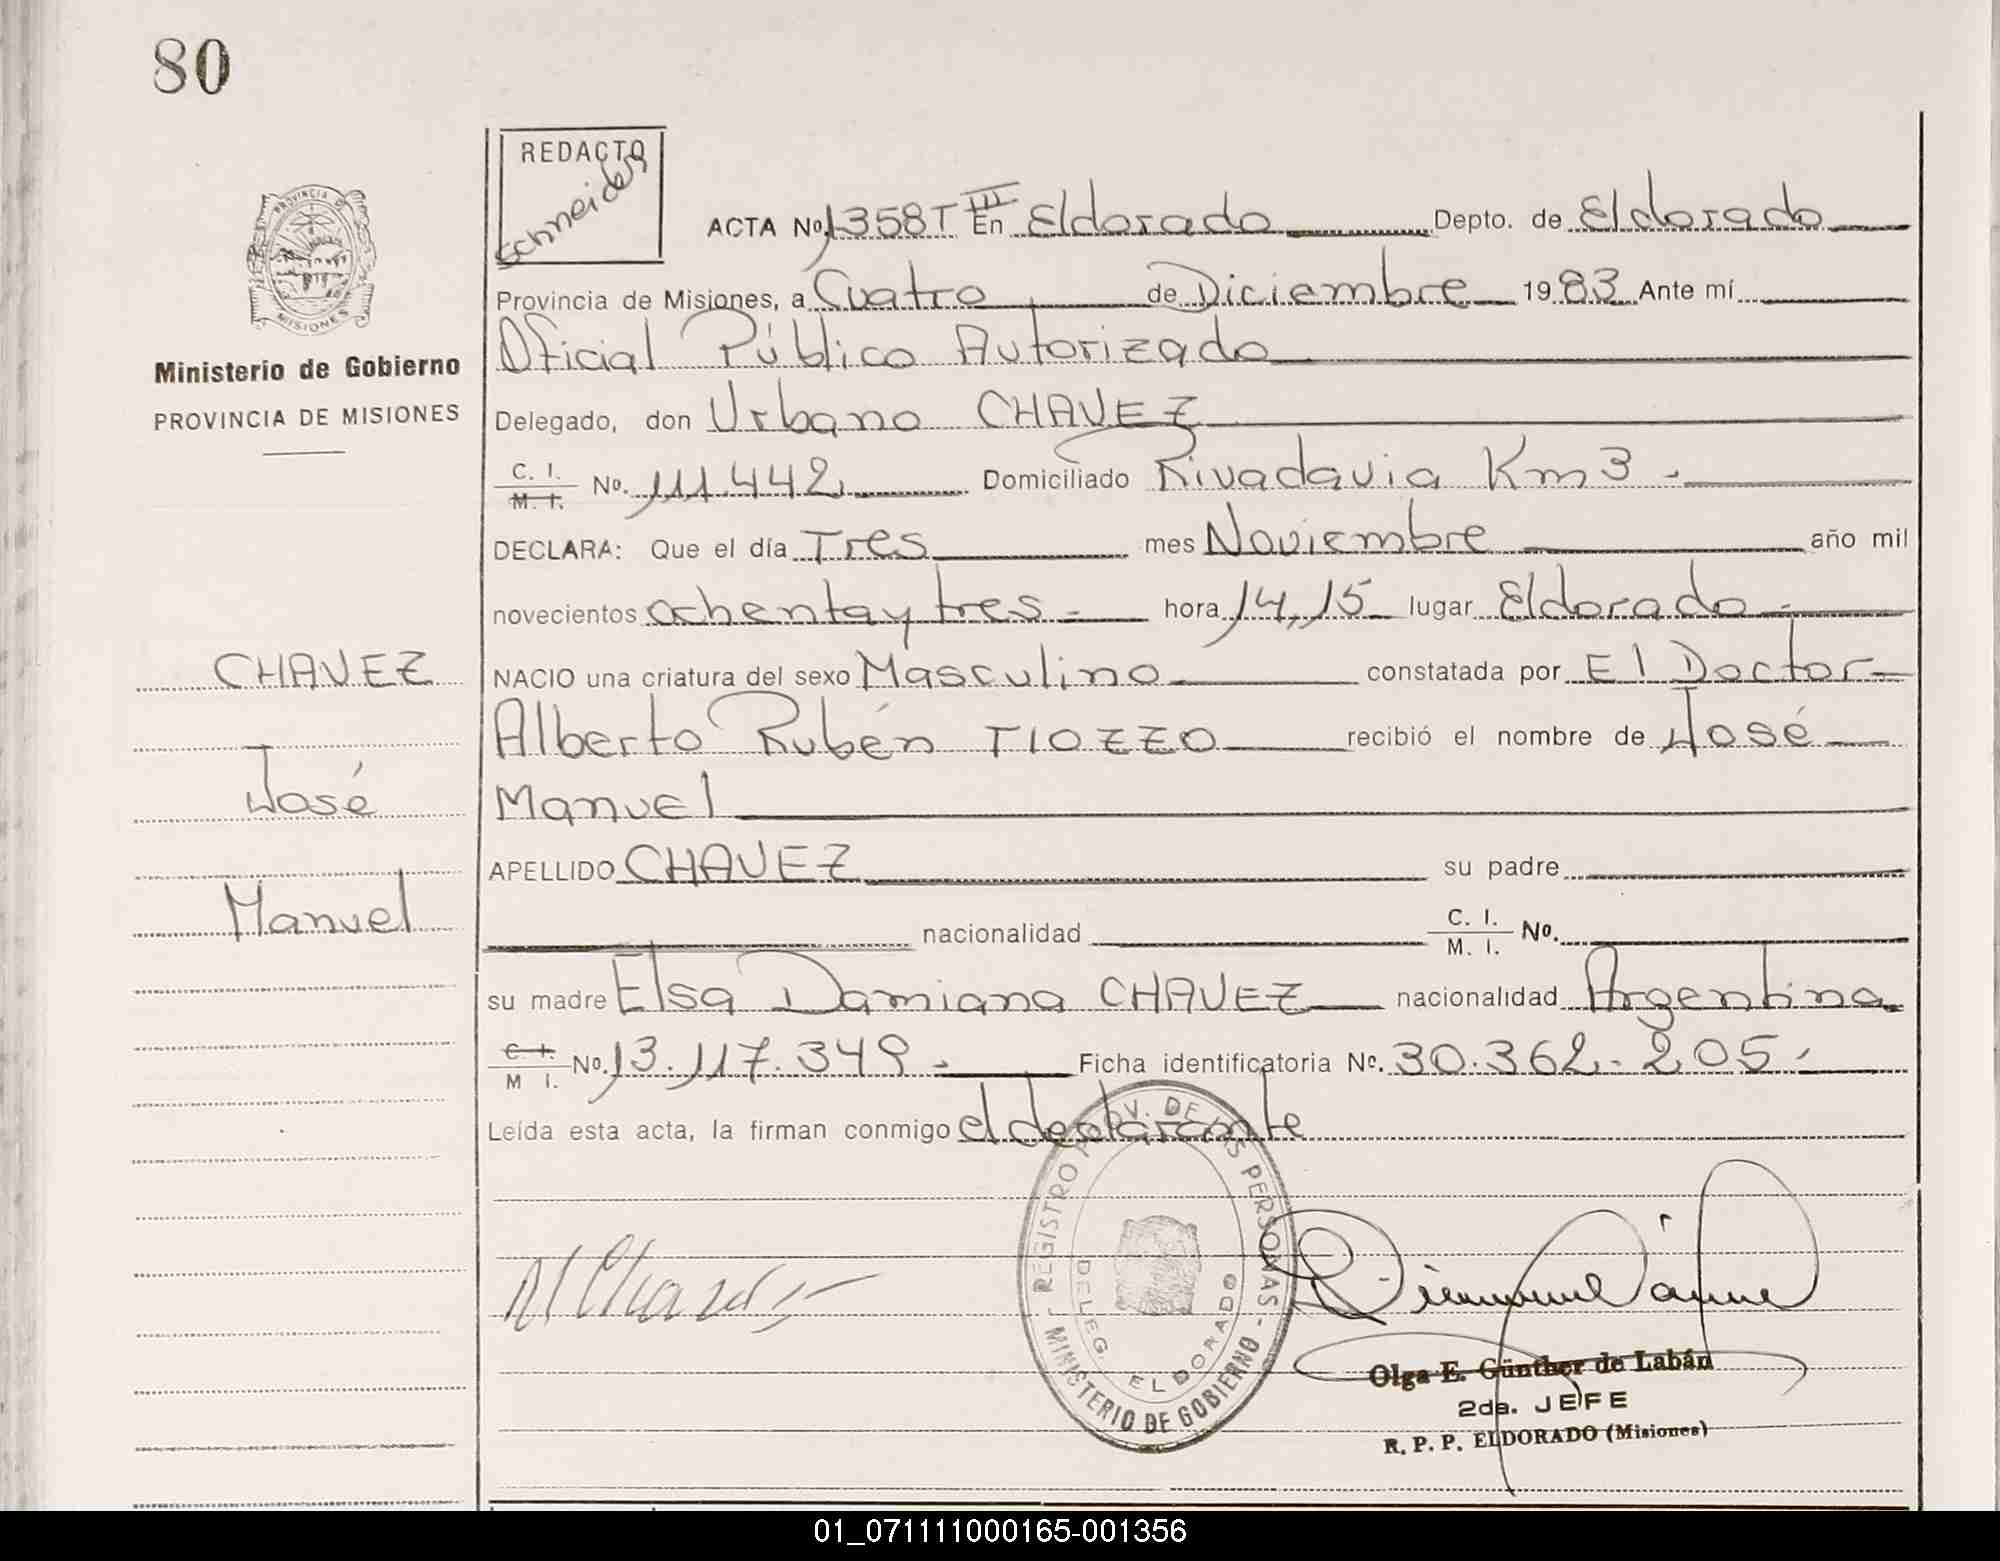 80
REDACTO
Schneider
PROVINCIA DE
MISIONES
Ministerio de Gobierno
PROVINCIA DE MISIONES
ACTA No. 1358 T III En Eldorado Depto. de Eldorado
Provincia de Misiones, a Cuatro de Diciembre 1983 Ante mí
Oficial Público Autorizado
Delegado, don Urbano CHAVEZ
C. I. M. I. No. 111.442 Domiciliado Rivadavia Km 3 -
DECLARA: Que el día Tres mes Noviembre año mil
novecientos ochenta y tres - hora 14,15 lugar Eldorado -
NACIO una criatura del sexo Masculino constatada por El Doctor
Alberto Rubén TIOZZO recibió el nombre de José
Manuel
APELLIDO CHAVEZ su padre
nacionalidad C. I. M. I. No.
su madre Elsa Damiana CHAVEZ nacionalidad Argentina
C. I. M I. No. 13.117.349 - Ficha identificatoria No. 30.362.205.-
Leída esta acta, la firman conmigo el declarante
CHAVEZ
José
Manuel
REGISTRO PROV. DE LAS PERSONAS - MINISTERIO DE GOBIERNO -
DELEG. ELDORADO
Olga E. Günther de Labán
2da. JEFE
R. P. P. ELDORADO (Misiones)
01_071111000165-001356